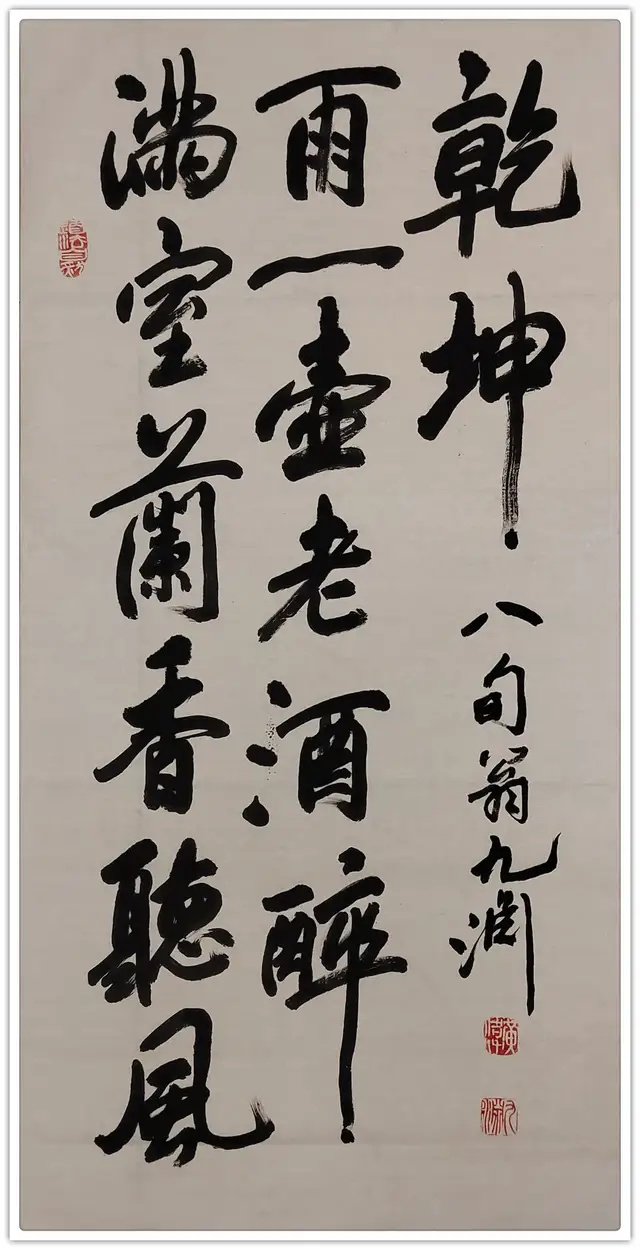 滿室蘭香聽風
雨一壺老酒醉
乾坤
八旬翁九淵